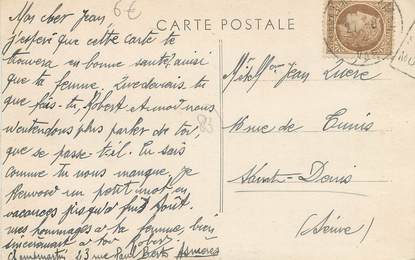 Mon cher Jean,
6€
CARTE POSTALE
j'espère que cette carte te
trouvera en bonne santé, ainsi
que ta femme, que deviens-tu
que fais-tu, Robert et nous
n'entendons plus parler de toi,
que se passe-t-il. Tu sais
comme tu nous manque, je
un petit mot en
vacances jusqu'à fin Août.
mes hommages à ta femme, bien
sincèrement à toi Robert.
23 rue Paul Bert Asnières
83
Jean
rue de Tunis
Saint-Denis
(Seine)